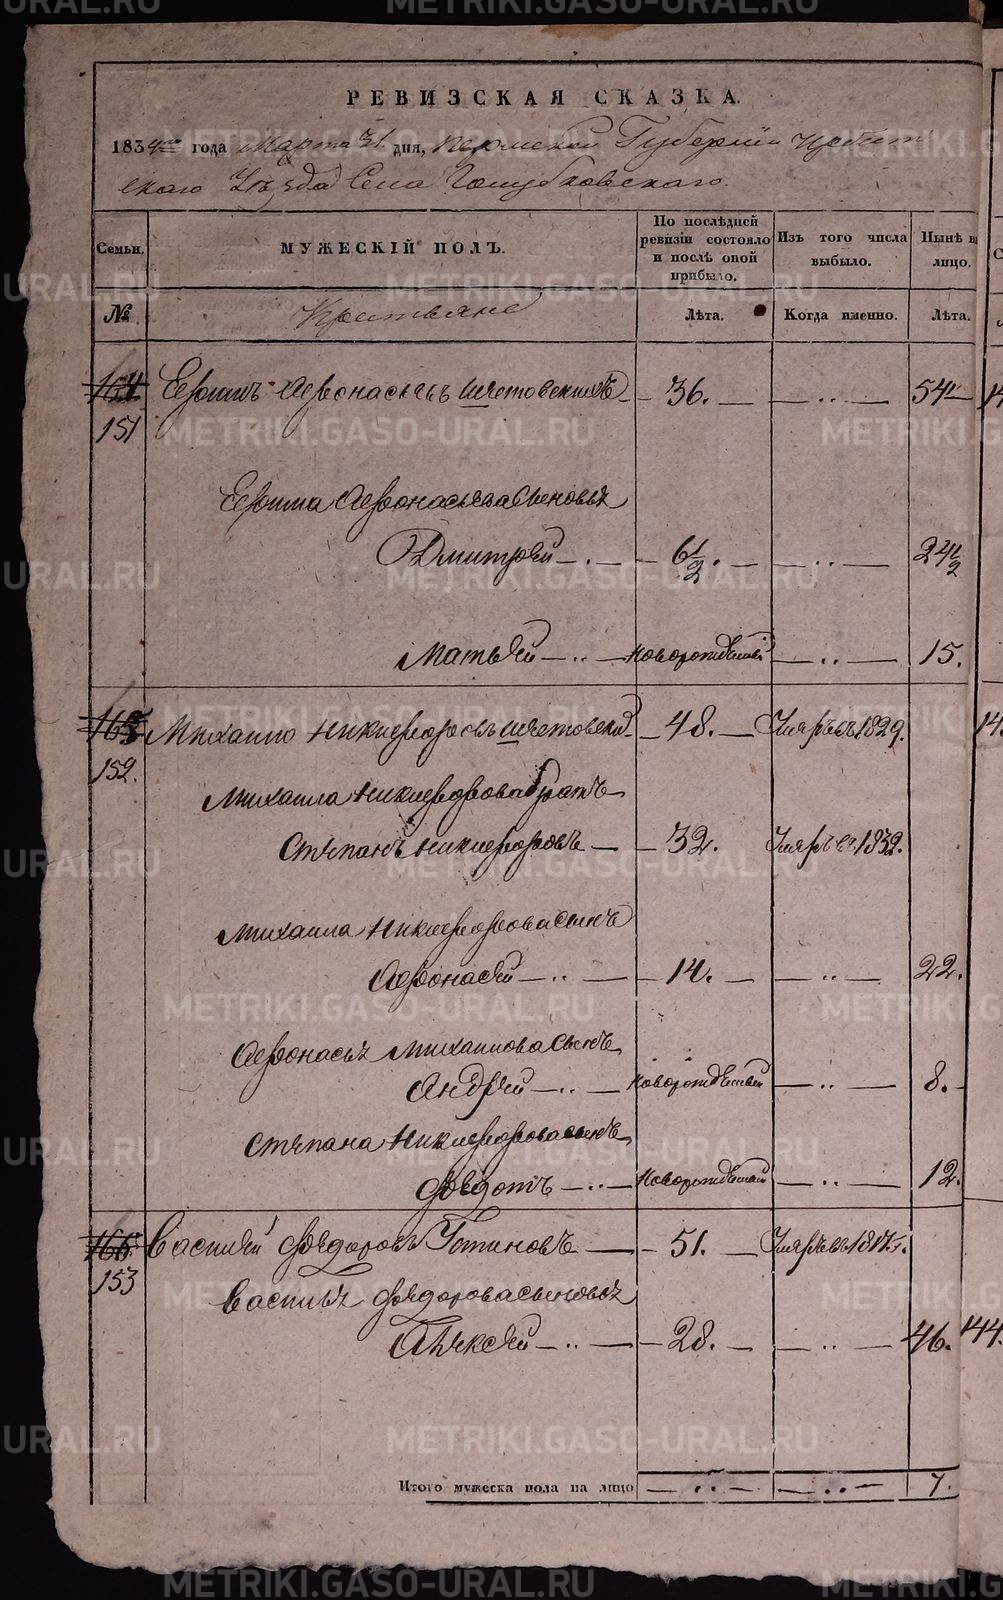 РЕВИЗСКАЯ СКАЗКА.
1834го года Марта 31 дня, Пермской Губернии Ирбит
скаго Уѣзда Села Голубковскаго.
Семьи.
МУЖЕСКІЙ ПОЛЪ.
По послѣдней ревизіи состояло и послѣ оной прибыло.
Изъ того числа выбыло.
Нынѣ на лицо.
№
Крестьяне
Лѣта.
Когда именно.
Лѣта.
164
151
Ефимъ Афонасьевъ Шетовскихъ 36. 54
Ефима Афонасьева сыновья
Дмитрей 6 1/2. 24 1/2
Матвей новорожденный 15.
165
152.
Михаило Никифоровъ Шетовских 48. Умре въ 1829.
Михаила Никифорова братъ
Степанъ Никифоровъ 32. Умре въ 1832.
Михаила Никифорова сынъ
Афонасей 14. 22.
Афонасья Михаилова сынъ
Андрей новорожденный 8.
Степана Никифорова сынъ
Федотъ новорожденный 12.
166
153
Василей Федоровъ Устиновъ 51. Умре въ
Василья Федорова сыновья
Алексей 28. 46.
144
Итого мужеска пола на лицо 7.
METRIKI.GASO-URAL.RU